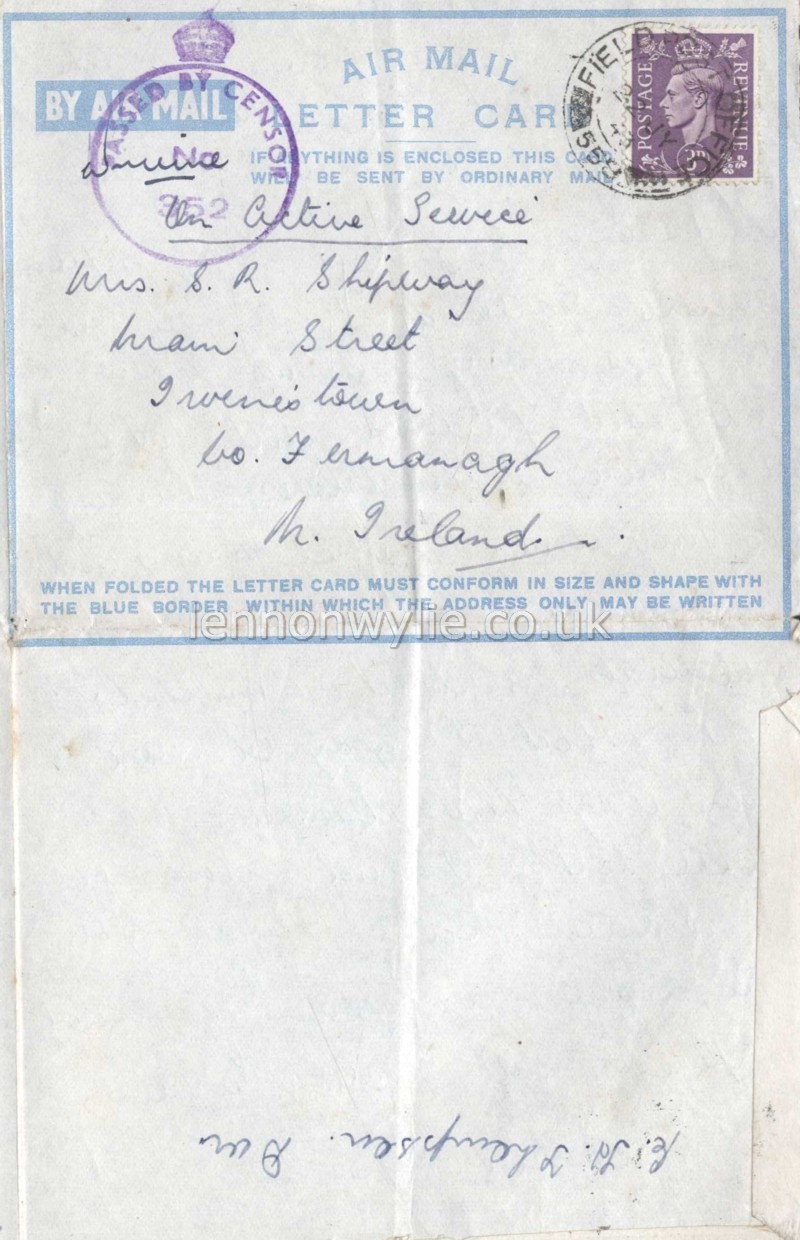 AIR MAIL
BY AIR MAIL
LETTER CARD
PASSED BY CENSOR
No
352
IF ANYTHING IS ENCLOSED THIS CARD
WILL BE SENT BY ORDINARY MAIL
FIELD POST OFFICE
POSTAGE REVENUE
3D
On Active Service
Mrs. S. R. Shipway
Main Street
Irvinestown
Co. Fermanagh
N. Ireland.
WHEN FOLDED THE LETTER CARD MUST CONFORM IN SIZE AND SHAPE WITH
THE BLUE BORDER WITHIN WHICH THE ADDRESS ONLY MAY BE WRITTEN
lennonwylie.co.uk